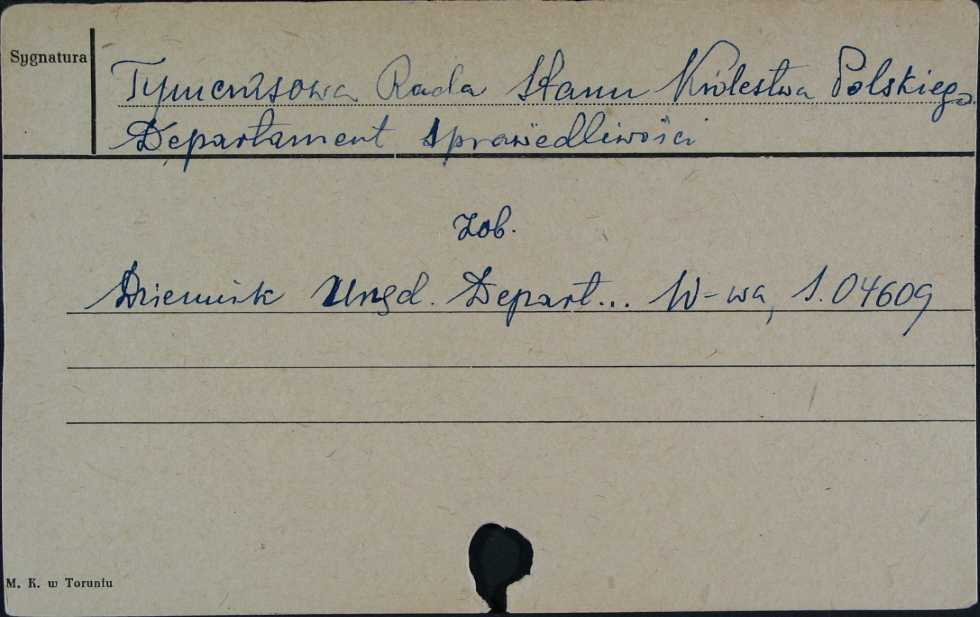 Sygnatura
Tymczasowa Rada Stanu Królestwa Polskiego
Departament Sprawiedliwości
Zob.
Dziennik Urzęd. Depart... W-wa, S.04609
M. K. w Toruniu